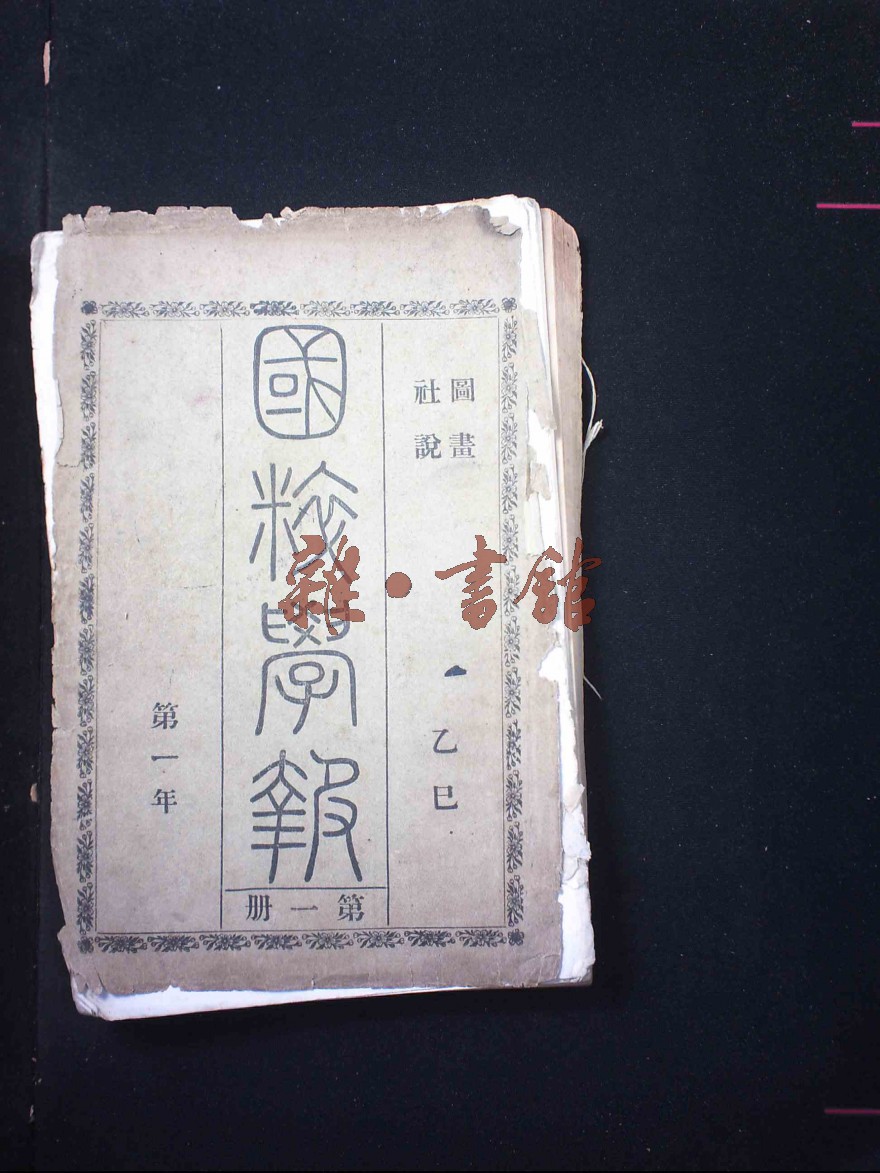 圖畫
社說
乙巳
國粹學報
第一冊
第一年
雜·書館